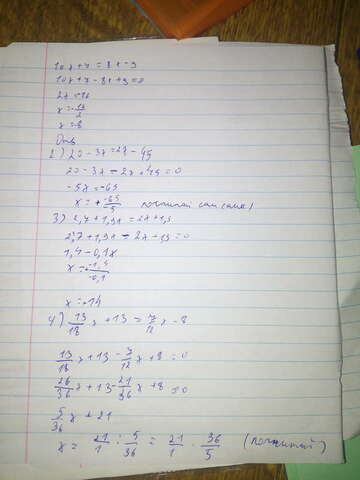 10x+7=8x-9
10x+7-8x+9=0
2x=-16
x=-16/2
x=-8
Отв
2) 20-3x=2x-45
20-3x-2x+45=0
-5x=-65
x=+-65/-5 (посчитай сам(сама))
3) 2,7+1,9x=2x+1,3
2,7+1,9x-2x-1,3=0
1,4-0,1x
x=-1,4/-0,1
x=+14
4) 13/18x+13=7/12x-8
13/18x+13-7/12x+8=0
26/36x+13-21/36x+8=0
5/36x+21
x=21/1:5/36=21/1·36/5 (посчитай)